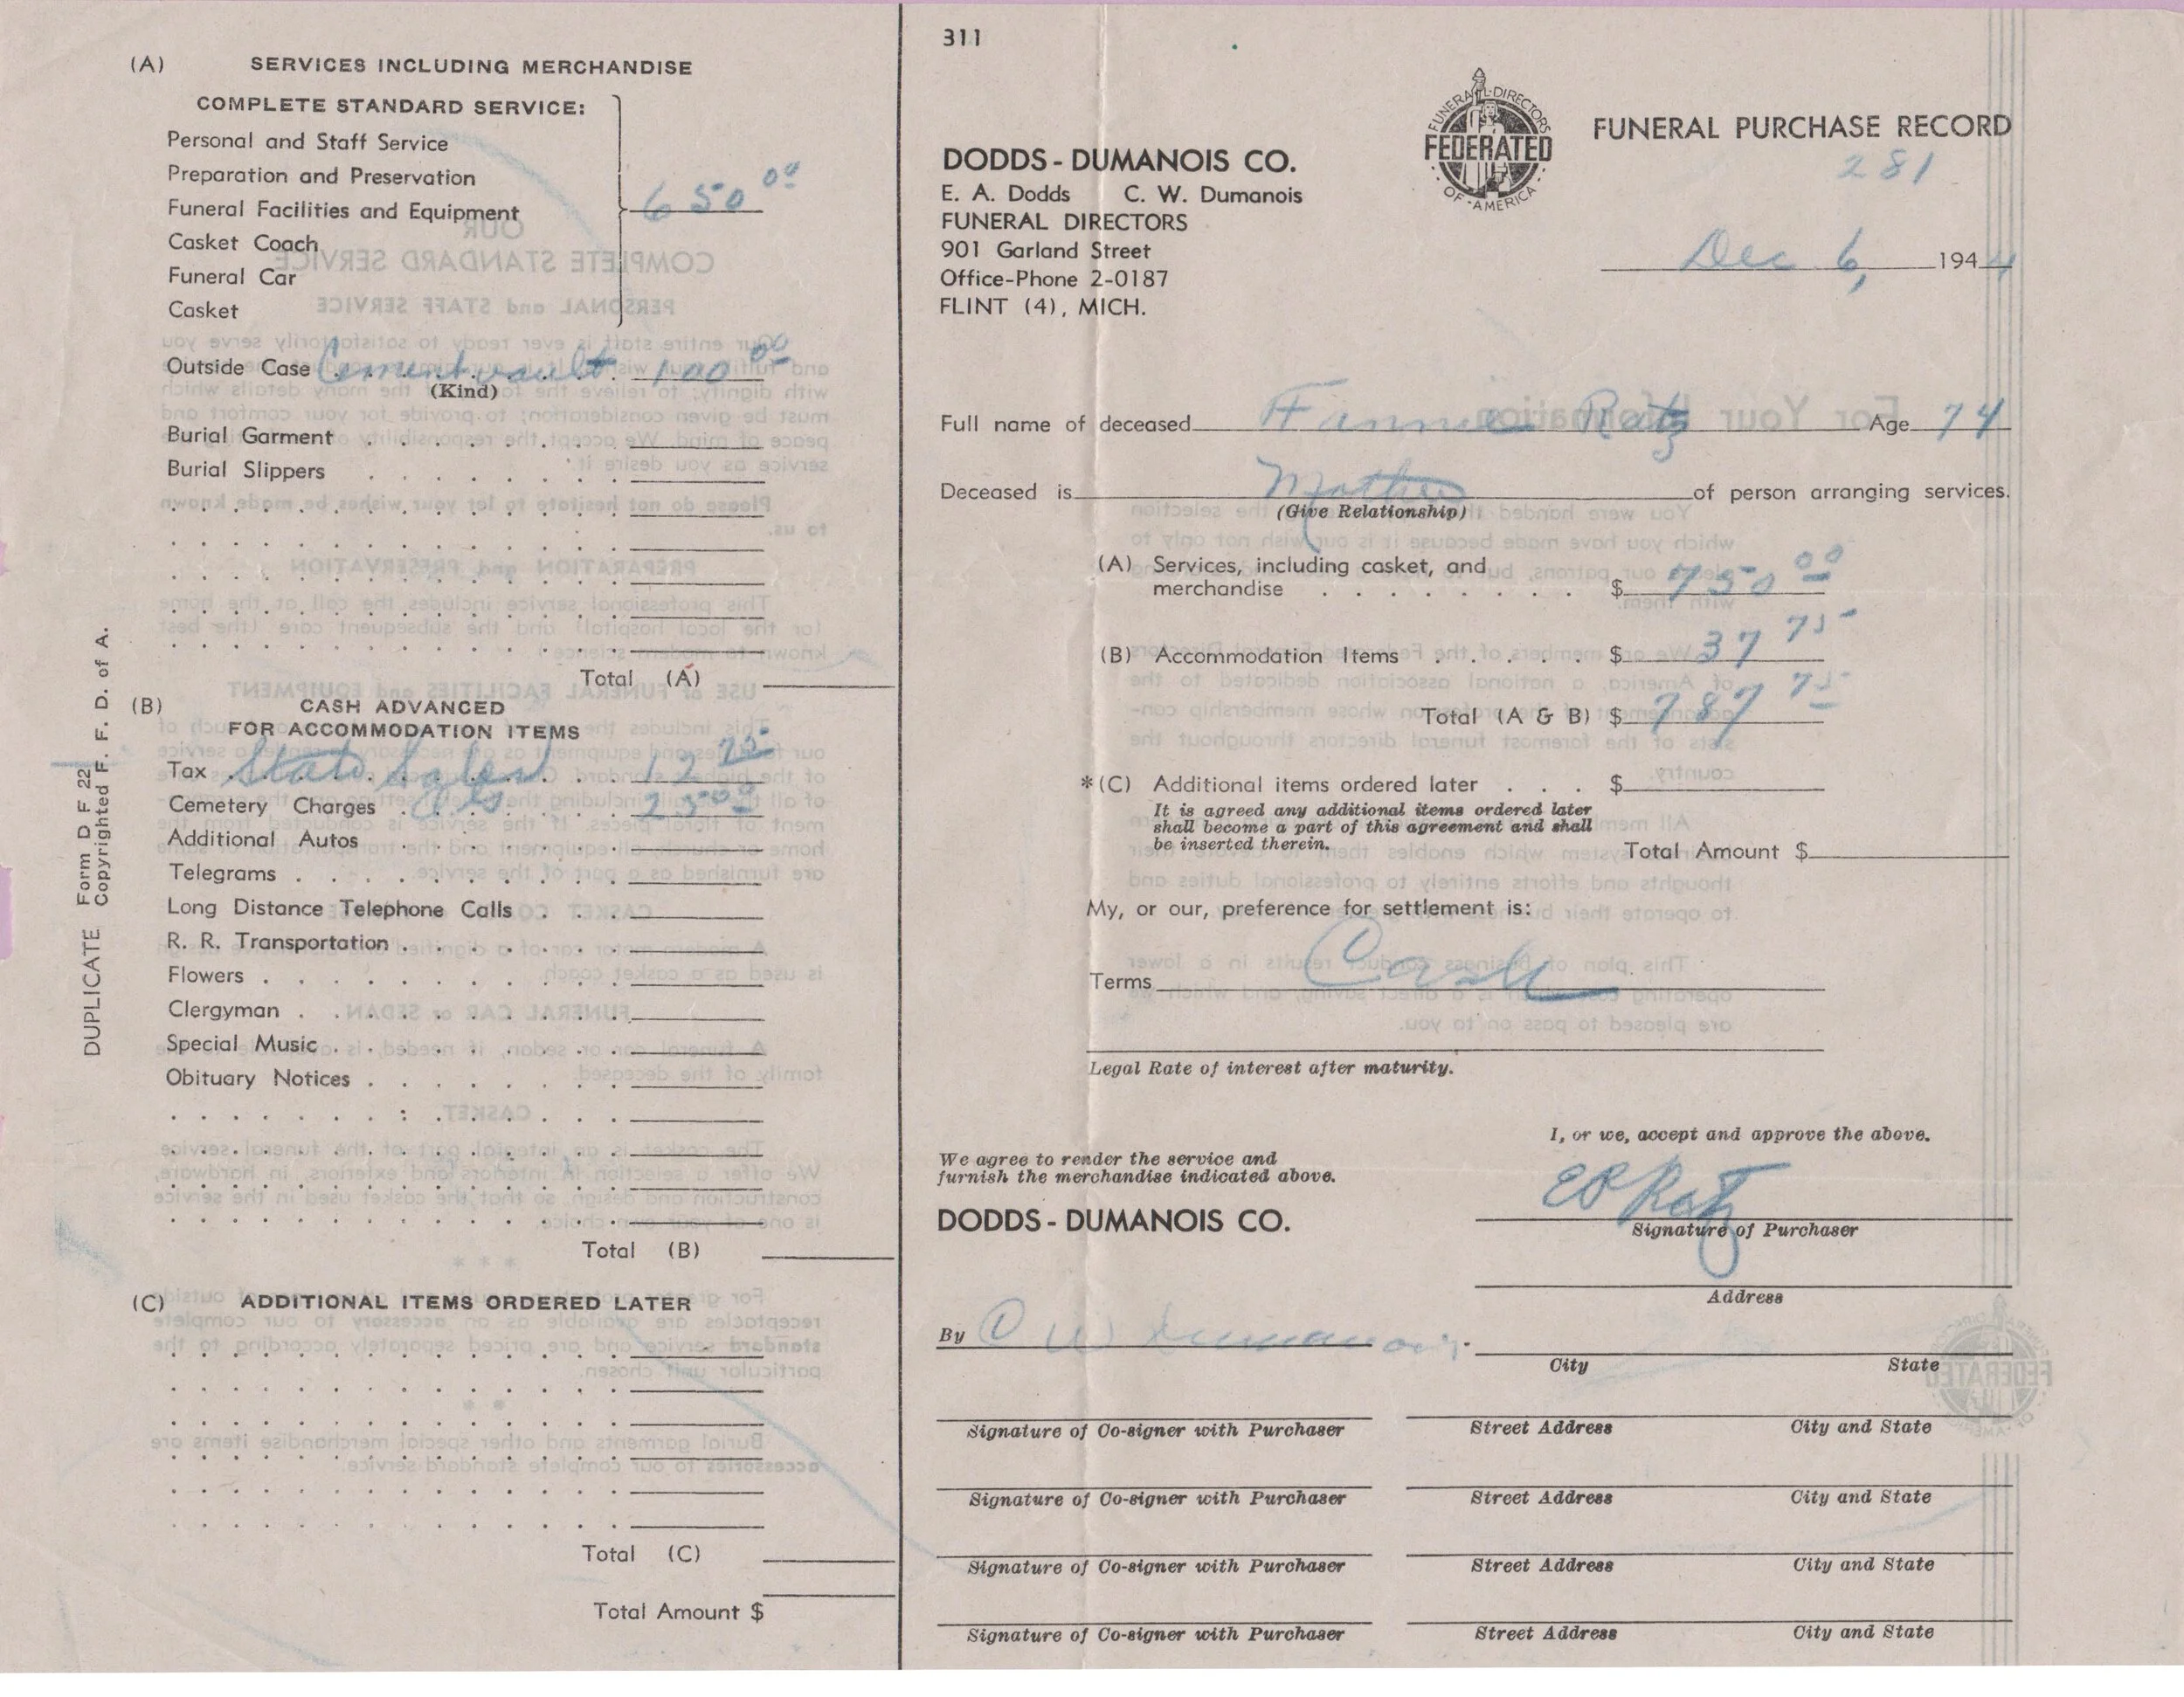 (A) SERVICES INCLUDING MERCHANDISE
COMPLETE STANDARD SERVICE:
Personal and Staff Service
Preparation and Preservation
Funeral Facilities and Equipment 650 00
Casket Coach
Funeral Car
Casket
Outside Case Cement vault 100 00
(Kind)
Burial Garment
Burial Slippers
Total (A)
(B) CASH ADVANCED
FOR ACCOMMODATION ITEMS
Tax State Sales 12 75
Cemetery Charges 25 00
Additional Autos
Telegrams
Long Distance Telephone Calls
R. R. Transportation
Flowers
Clergyman
Special Music
Obituary Notices
Total (B)
(C) ADDITIONAL ITEMS ORDERED LATER
Total (C)
Total Amount $
DUPLICATE Form D F 22
Copyrighted F. F. D. of A.
311
FUNERAL DIRECTORS
FEDERATED
OF AMERICA
FUNERAL PURCHASE RECORD
281
DODDS - DUMANOIS CO.
E. A. Dodds C. W. Dumanois
FUNERAL DIRECTORS
901 Garland Street
Office-Phone 2-0187
FLINT (4), MICH.
Dec 6, 1944
Full name of deceased Fannie Ratz Age 74
Deceased is Mother of person arranging services.
(Give Relationship)
(A) Services, including casket, and
merchandise $ 750 00
(B) Accommodation Items $ 37 75
Total (A & B) $ 787 75
*(C) Additional items ordered later $
It is agreed any additional items ordered later
shall become a part of this agreement and shall
be inserted therein.
Total Amount $
My, or our, preference for settlement is:
Terms Cash
Legal Rate of interest after maturity.
I, or we, accept and approve the above.
We agree to render the service and
furnish the merchandise indicated above.
E R Ratz
Signature of Purchaser
DODDS - DUMANOIS CO.
Address
By C W Dumanois
City State
Signature of Co-signer with Purchaser Street Address City and State
Signature of Co-signer with Purchaser Street Address City and State
Signature of Co-signer with Purchaser Street Address City and State
Signature of Co-signer with Purchaser Street Address City and State